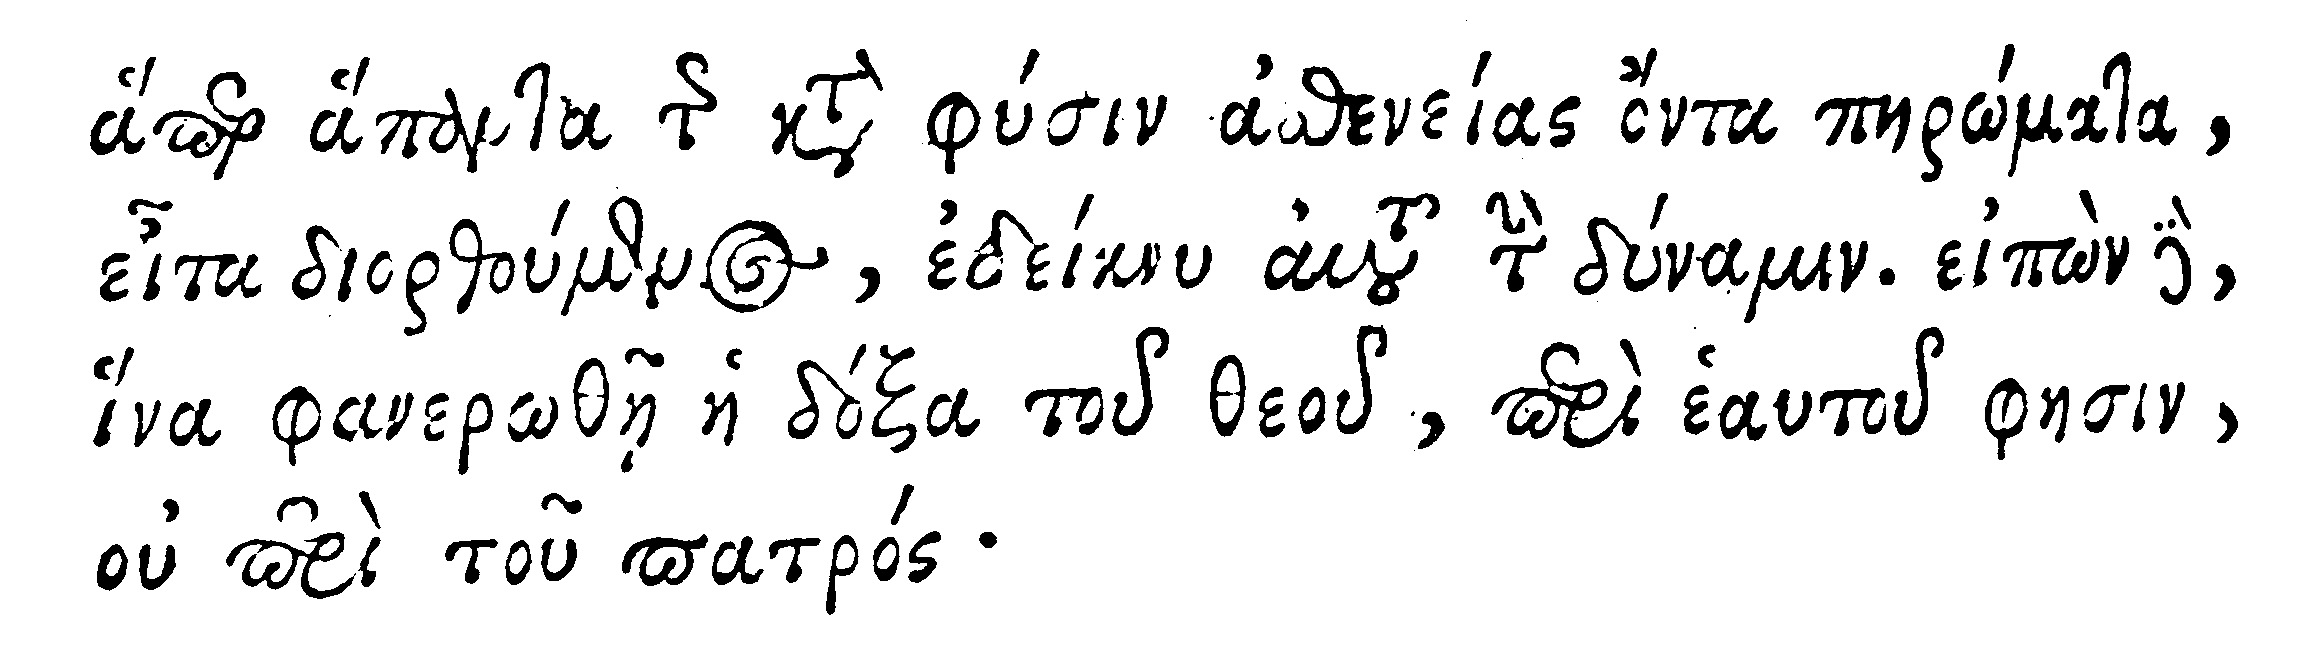 ἅπερ ἅπαντα τῆς κατὰ φύσιν ἀσθενείας ὄντα πηρώματα,
εἶτα διορθούμενος, ἐδείκνυ αὐτοῦ τὴν δύναμιν. εἰπὼν δὲ,
ἵνα φανερωθῇ ἡ δόξα τοῦ θεοῦ, περὶ ἑαυτοῦ φησιν,
οὐ περὶ τοῦ πατρός·